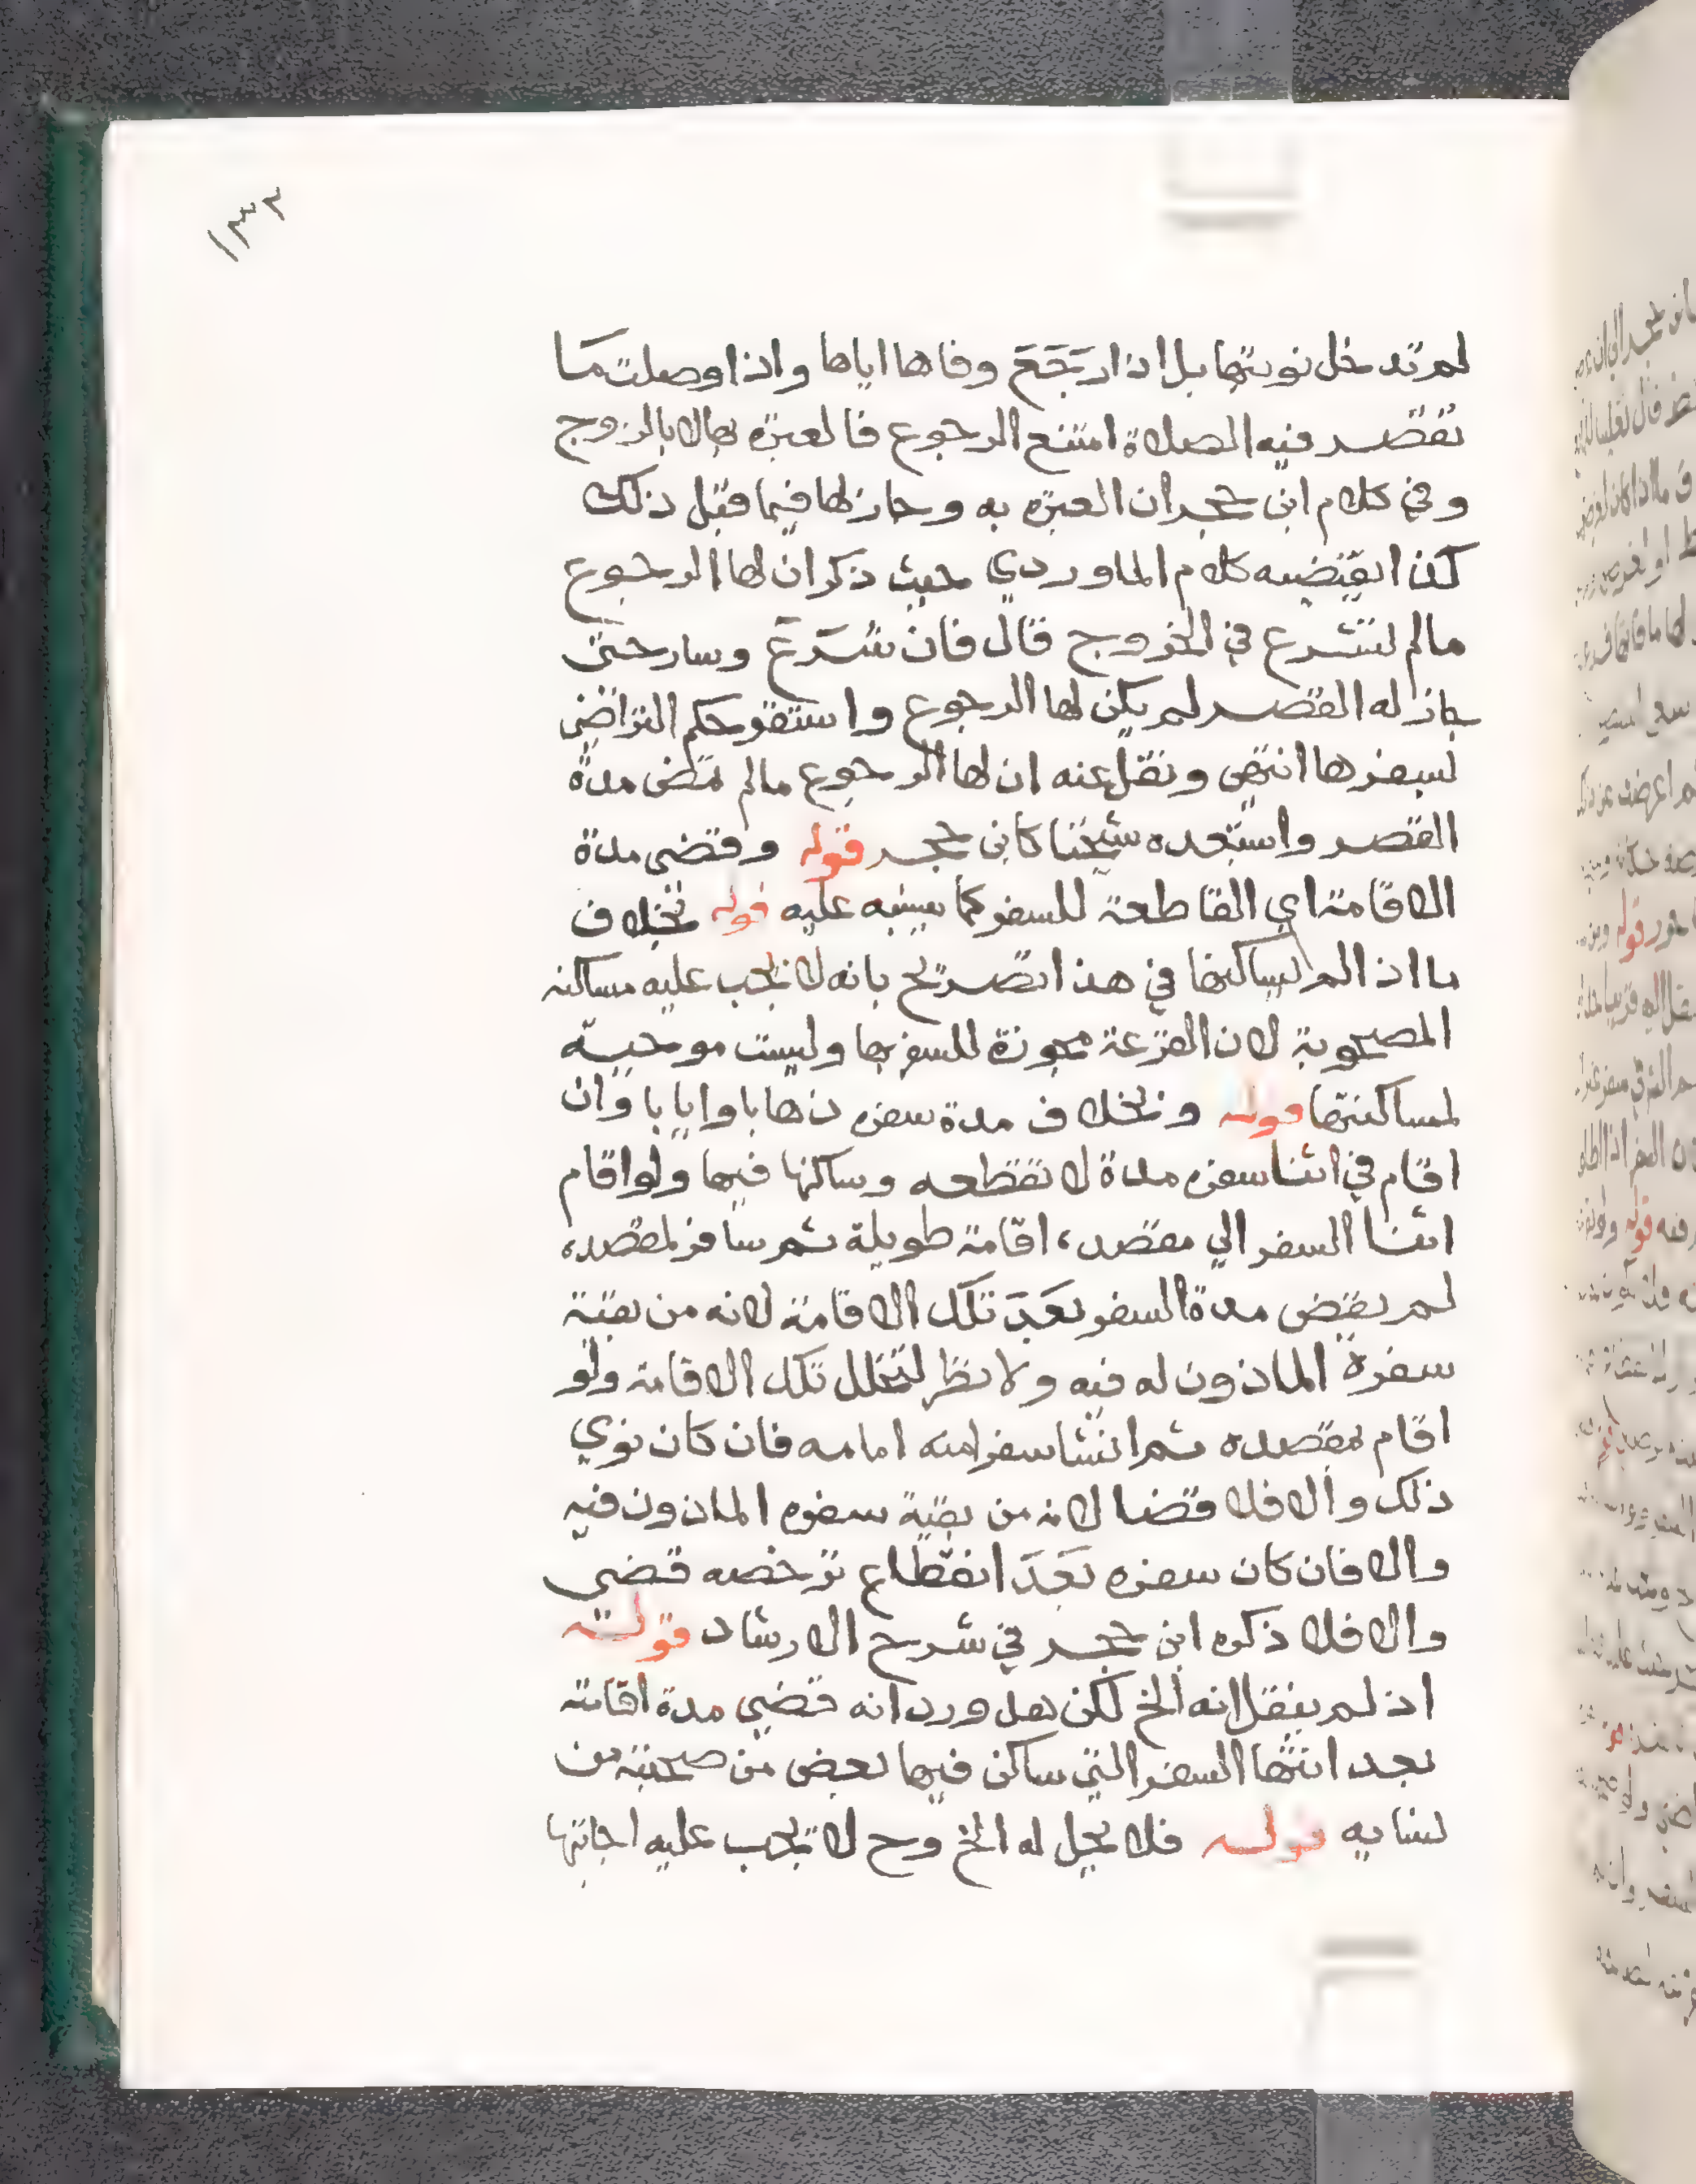 ١٣٢
لم تدخل نوبتها بل اذا رَجَعَ وفاها اياها واذا وصلت مَا
تقصر فيه الصلاة امتنع الرجوع فالعبرة بالزوج
وفي كلام ابن حجر ان العبرة به وجاز لها فيما قبل ذلك
كذا يقتضيه كلام الماوردي حيث ذكر ان لها الرجوع
مالم تشرع في الخروج قال فان شَرَعَ وسار حتى
جاز له القصر لم يكن لها الرجوع واستقر حكم التراضي
لسفرها انتهى ونقل عنه ان لها الرجوع مالم تمض مدة
القصر واستبعده شيخنا كابن حجر قوله وقضى مدة
الاقامة اي القاطعة للسفر كما نبيه عليه قوله بخلاف
ما اذا لم يساكنها في هذا تصريح بانه لا تجب عليه مساكنة
المصحوبة لان القرعة مجوزة للسفر بها وليست موجبة
لمساكنتها قوله وبخلاف مدة سفره ذهابا وايابا وان
اقام في اثنا سفره مدة لا تقطعه وساكنها فيها ولو اقام
اثنا السفر الي مقصده اقامة طويلة ثم سافر لمقصده
لم يقض مدة السفر بَعَدَ تلك الاقامة لانه من بقية
سفره الماذون له فيه ولا نظر لتخلل تلك الاقامة ولو
اقام بمقصده ثم انشا سفرا منه امامه فان كان نوي
ذلك والا فلا قضا لانه من بقية سفره الماذون فيه
والا فان كان سفره بَعَدَ انقطاع ترخصه قضى
والا فلا ذكره ابن حجر في شرح الارشاد قوله
اذ لم ينقل انه الخ لكن هل ورد انه قضي مدة اقامته
بعد انتها السفر التي ساكن فيها بعض من صحبته من
نسايه قوله فلا يحل له الخ وح لا تجب عليه اجابتها